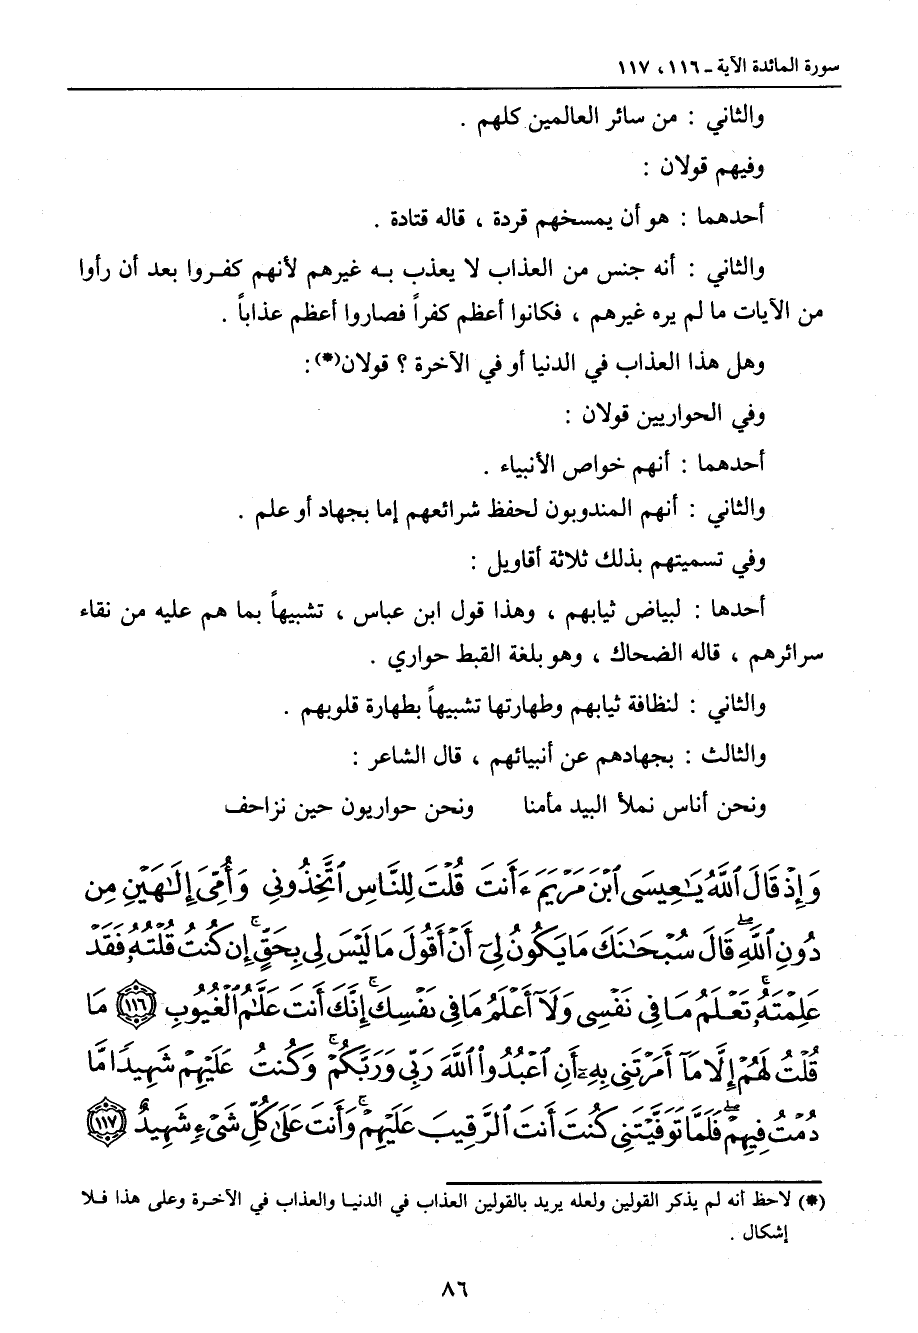 سورة المائدة الآية ـ ١١٦ ، ١١٧
والثاني : من سائر العالمين كلهم .
وفيهم قولان :
أحدهما : هو أن يمسخهم قردة ، قاله قتادة .
والثاني : أنه جنس من العذاب لا يعذب به غيرهم لأنهم كفروا بعد أن رأوا
من الآيات ما لم يره غيرهم ، فكانوا أعظم كفراً فصاروا أعظم عذاباً .
وهل هذا العذاب في الدنيا أو في الآخرة ؟ قولان(*) :
وفي الحواريين قولان :
أحدهما : أنهم خواص الأنبياء .
والثاني : أنهم المندوبون لحفظ شرائعهم إما بجهاد أو علم .
وفي تسميتهم بذلك ثلاثة أقاويل :
أحدها : لبياض ثيابهم ، وهذا قول ابن عباس ، تشبيهاً بما هم عليه من نقاء
سرائرهم ، قاله الضحاك ، وهو بلغة القبط حواري .
والثاني : لنظافة ثيابهم وطهارتها تشبيهاً بطهارة قلوبهم .
والثالث : بجهادهم عن أنبيائهم ، قال الشاعر :
ونحن أناس نملأ البيد مأمنا ونحن حواريون حين نزاحف
وَإِذْ قَالَ ٱللَّهُ يَـٰعِيسَى ٱبْنَ مَرْيَمَ ءَأَنتَ قُلْتَ لِلنَّاسِ ٱتَّخِذُونِي وَأُمِّيَ إِلَـٰهَيْنِ مِن
دُونِ ٱللَّهِۖ قَالَ سُبْحَـٰنَكَ مَا يَكُونُ لِيٓ أَنْ أَقُولَ مَا لَيْسَ لِي بِحَقٍّۚ إِن كُنتُ قُلْتُهُۥ فَقَدْ
عَلِمْتَهُۥۚ تَعْلَمُ مَا فِي نَفْسِي وَلَآ أَعْلَمُ مَا فِي نَفْسِكَۚ إِنَّكَ أَنتَ عَلَّـٰمُ ٱلْغُيُوبِ ١١٦ مَا
قُلْتُ لَهُمْ إِلَّا مَآ أَمَرْتَنِي بِهِۦٓ أَنِ ٱعْبُدُوا۟ ٱللَّهَ رَبِّي وَرَبَّكُمْۚ وَكُنتُ عَلَيْهِمْ شَهِيدًا مَّا
دُمْتُ فِيهِمْۖ فَلَمَّا تَوَفَّيْتَنِي كُنتَ أَنتَ ٱلرَّقِيبَ عَلَيْهِمْۚ وَأَنتَ عَلَىٰ كُلِّ شَيْءٍ شَهِيدٌ ١١٧
(*) لاحظ أنه لم يذكر القولين ولعله يريد بالقولين العذاب في الدنيا والعذاب في الآخرة وعلى هذا فلا
إشكال .
٨٦